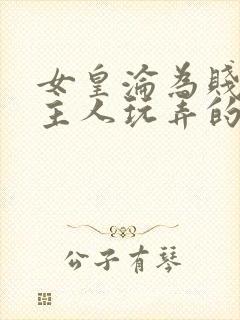 女皇淪為賤
主人玩弄的
公子有琴